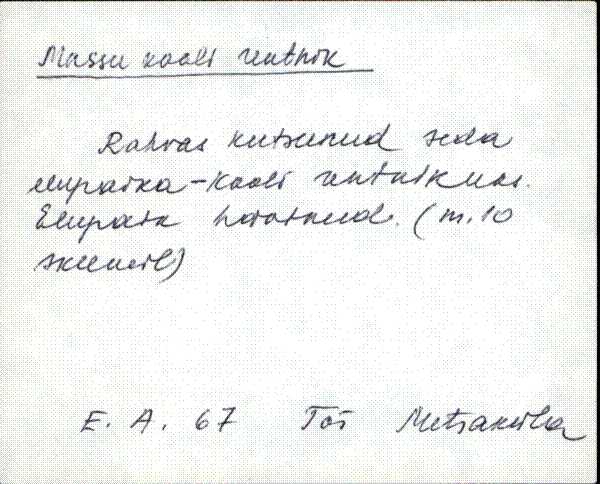 Massu kooli rentnik
Rahvas kutsunud seda
elupaika-kooli rentnikuks.
Elupaik hävinud. (m. 10
skeemil)
E. A. 67 Tõs Metsaküla